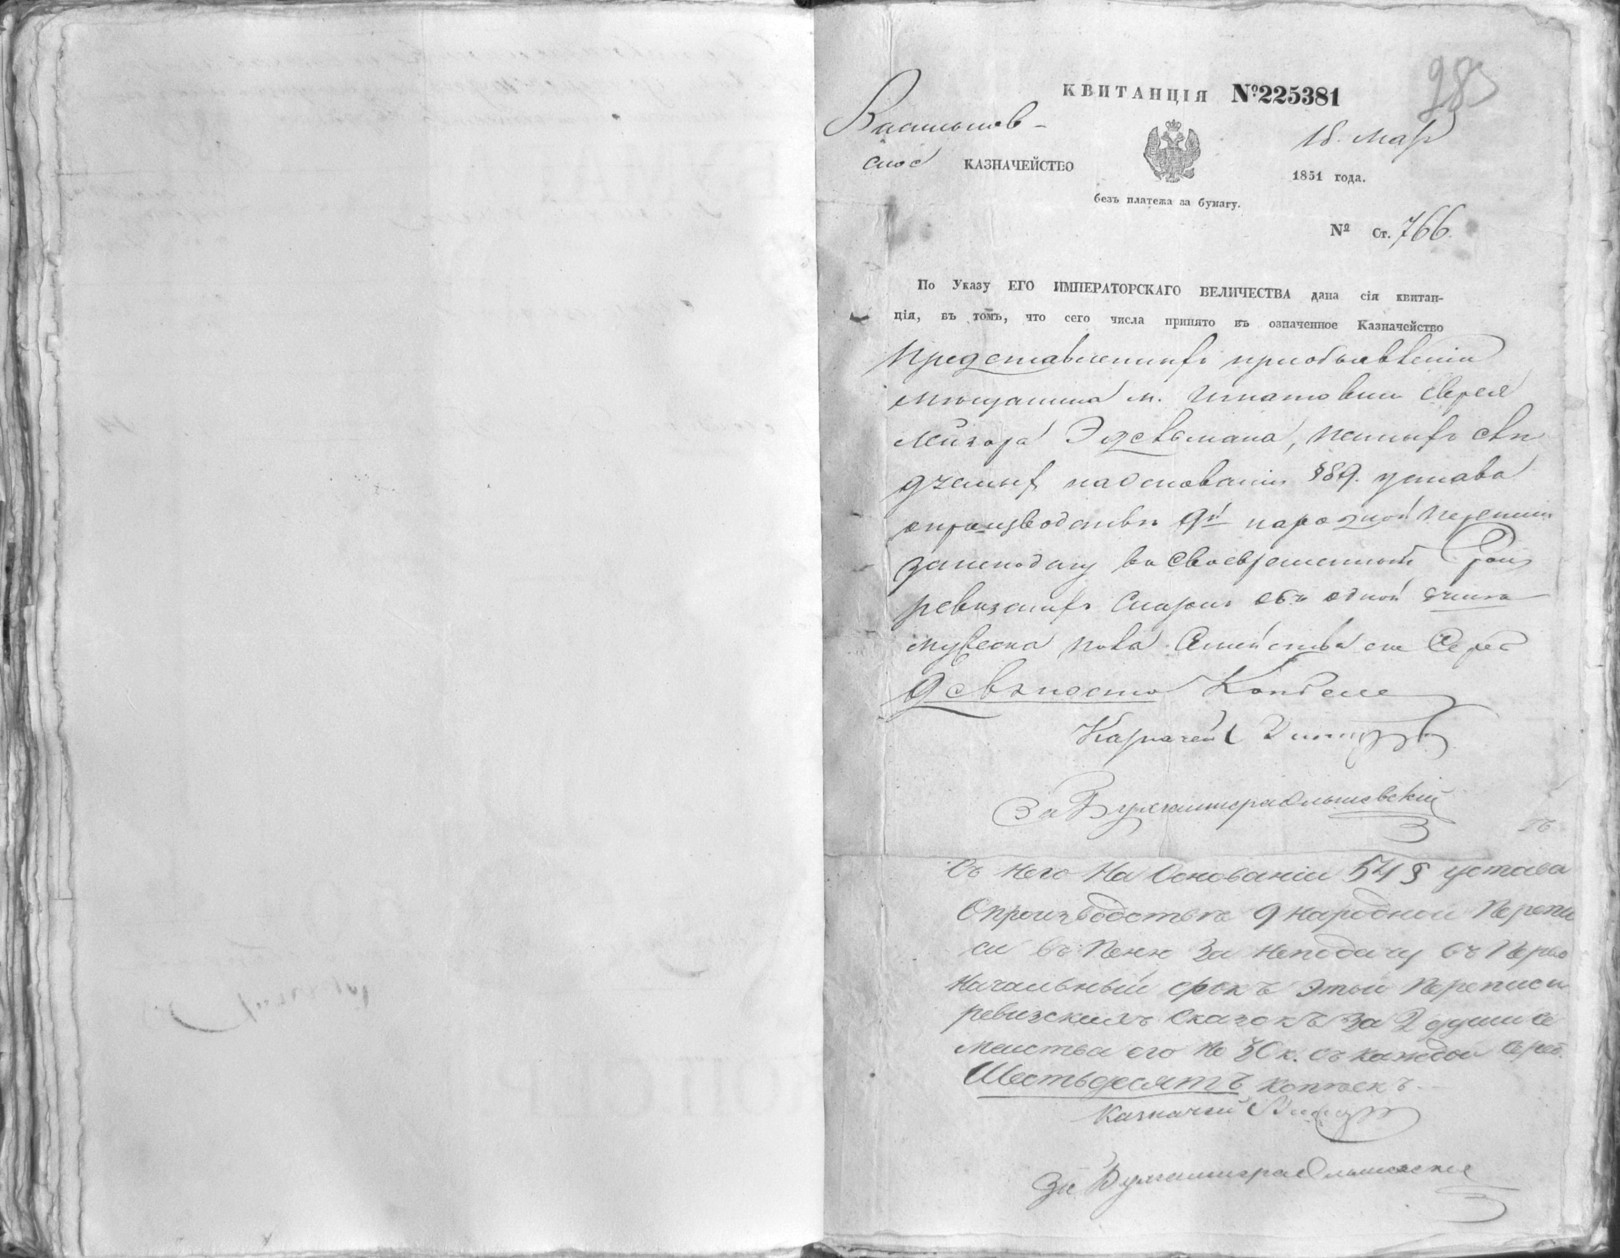 285
КВИТАНЦІЯ №225381
Васильков-
ское КАЗНАЧЕЙСТВО
18. мар
1851 года.
безъ платежа за бумагу.
№ Ст. 766.
По Указу ЕГО ИМПЕРАТОРСКАГО ВЕЛИЧЕСТВА дана сія квитан-
ція, въ томъ, что сего числа принято въ означенное Казначейство
Представленныхъ при объявленіи
мѣщанина м. Игнатовки Еврея
Лейзора Эдельмана, пенныхъ
на основаніи §89. устава
о производствѣ 9й народной переписи
за неподачу въ своевременный срокъ
ревизскихъ сказокъ объ одной душѣ
мужеска пола семейства его Сереб
девяносто Копѣекъ
Казначей
За Бухгалтера Ольшевскій
Съ него на Основаніи 54 § устава
О производствѣ 9 народной Перепи
си въ Пеню За неподачу въ Перво
Начальный срокъ этой Переписи
ревизскихъ Сказокъ За 2 души Се
мейства его По 30 к. съ каждой Сереб.
Шестьдесятъ копѣекъ.
Казначей
За Бухгалтера Ольшевскій